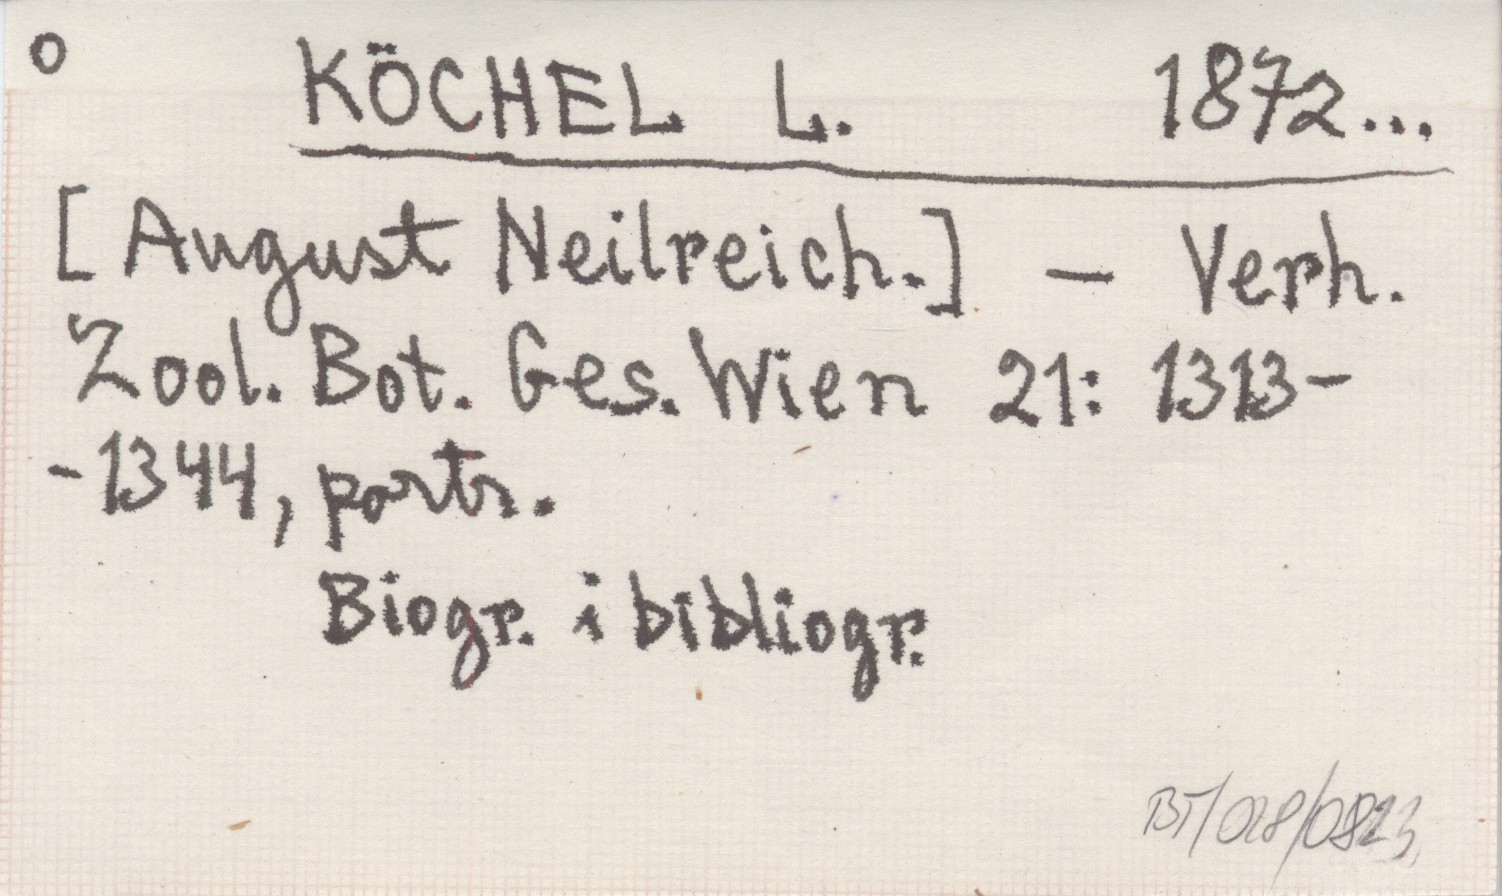 o KÖCHEL L. 1872...
[August Neilreich.] - Verh.
Zool. Bot. Ges. Wien 21: 1313-
-1344, portr.
Biogr. i bibliogr.
BT/028/0823